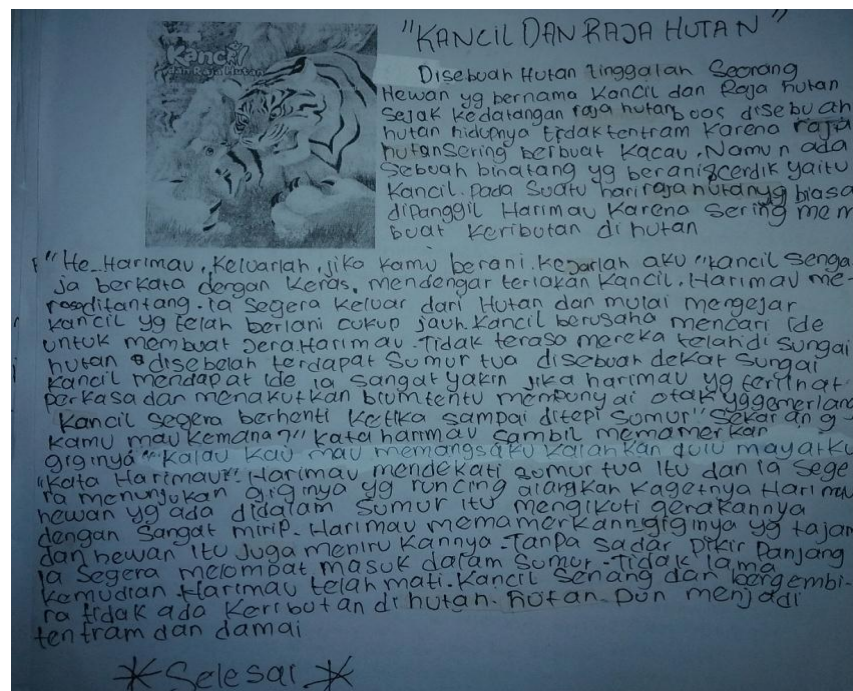 "KANCIL DAN RAJA HUTAN"
Kancil
dan Raja Hutan
Disebuah Hutan tinggalah Seorang
Hewan yg bernama Kancil dan Raja hutan
Sejak kedatangan raja hutan boos disebuah
hutan hidupnya tidak tentram Karena raja
hutan sering berbuat Kacau. Namun ada
Sebuah binatang yg berani&cerdik yaitu
Kancil. Pada Suatu hari raja hutan yg biasa
dipanggil Harimau Karena Sering mem
buat Keributan di hutan
"He..Harimau, Keluarlah, jika kamu berani. Kejarlah aku "kancil Senga
ja berkata dengan Keras, mendengar teriakan Kancil. Harimau me-
rasa ditantang. Ia Segera Keluar dari Hutan dan mulai mengejar
Kancil yg telah berlari cukup jauh. Kancil berusaha mencari ide
untuk membuat Jera Harimau. Tidak terasa mereka telah di Sungai
hutan disebelah terdapat Sumur tua disebuah dekat Sungai
Kancil mendapat ide ia sangat yakin jika harimau yg terlihat
perkasa dan menakutkan blum tentu mempunyai otak yg gemerlang
Kancil Segera berhenti Ketika Sampai ditepi Sumur "Sekarang
kamu mau kemana?" kata harimau Sambil memamerkan
giginya "Kalau kau mau memangsaku kalahkan dulu mayatku
"Kata Harimau". Harimau mendekati sumur tua Itu dan ia Sege
ra menunjukan giginya yg runcing alangkah Kagetnya Harimau
hewan yg ada didalam Sumur itu mengikuti gerakannya
dengan Sangat mirip. Harimau memamerkann giginya yg tajam
dan hewan itu Juga meniru Kannya. Tanpa Sadar Pikir Panjang
Ia Segera melompat masuk dalam Sumur. Tidak lama
Kemudian Harimau telah mati. Kancil Senang dan bergembi-
ra tidak ada Keributan di hutan. hutan pun menjadi
tentram dan damai
* Selesai *